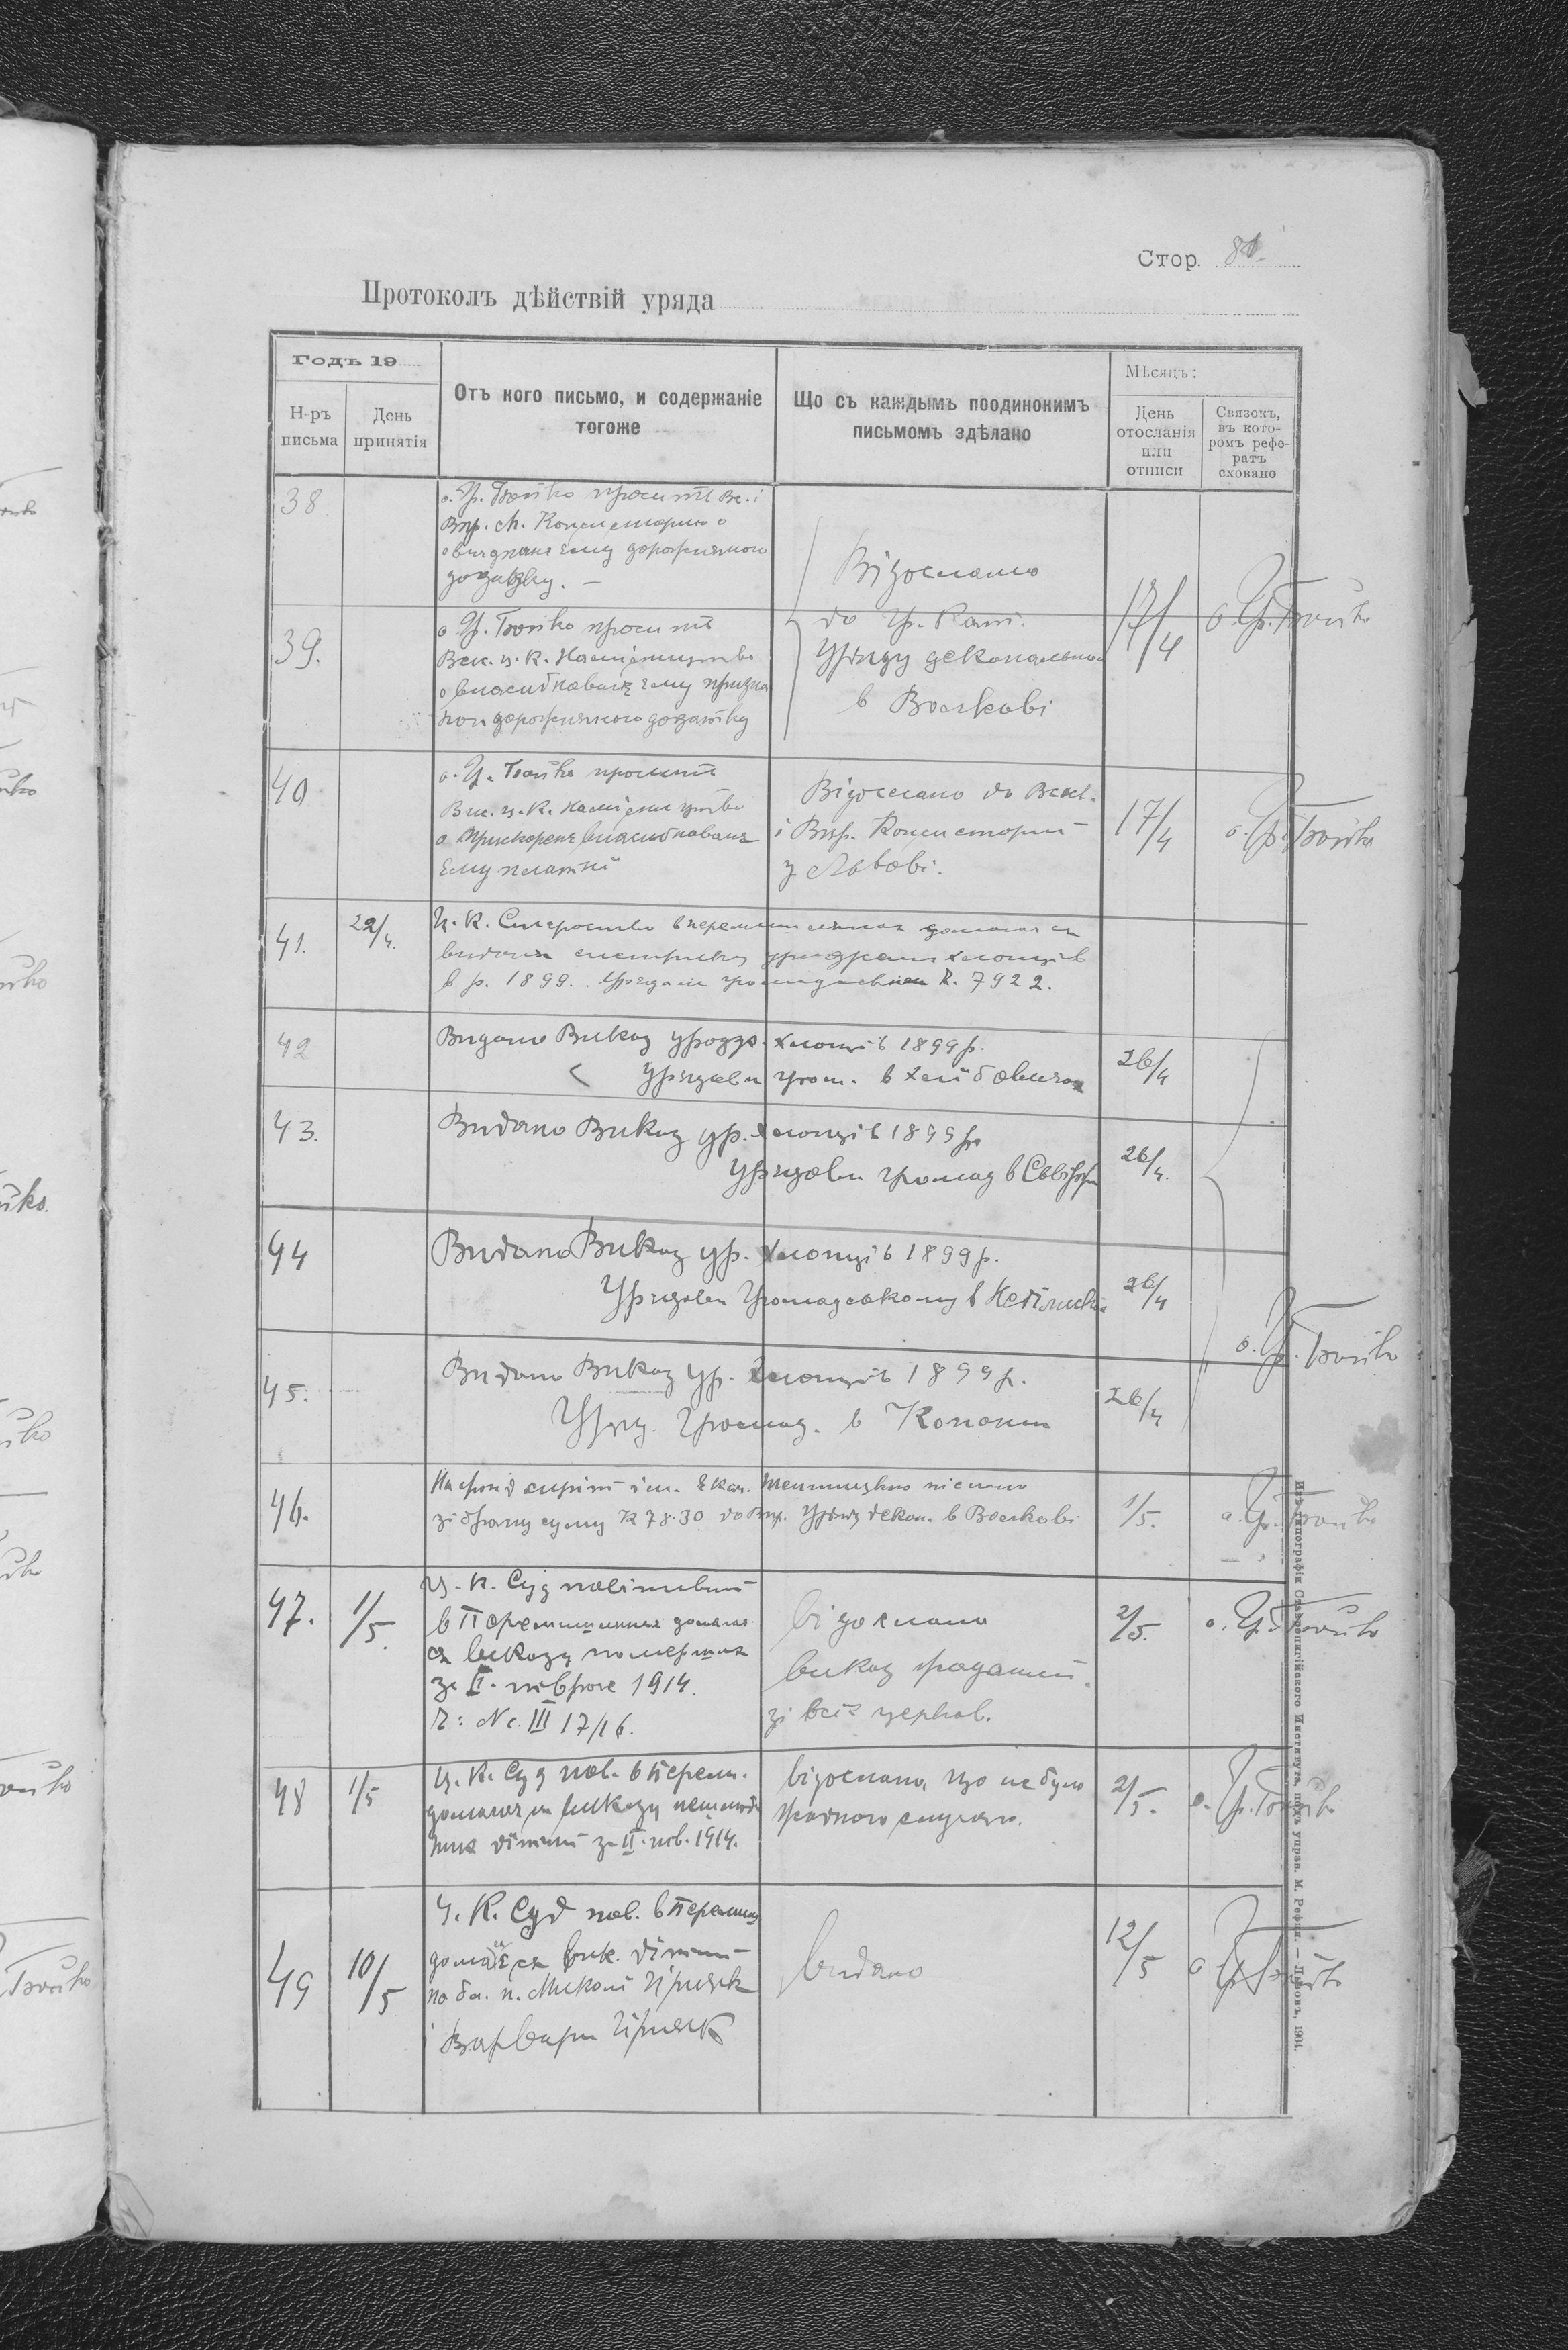 Стор. 81
Протоколъ дѣйствій уряда
Годъ 19
Н-ръ письма
День принятія
Отъ кого письмо, и содержаніе тогоже
Що съ каждымъ поодинокимъ письмомъ здѣлано
Мѣсяць:
День отосланія или отписи
Связокъ, въ кото-ромъ рефе-ратъ сховано
38
о. Гр. Бойко просить Вс. і
Впр. М. Консисторию о
ему дорожняного
додатку. —
Відослано
до гр. Кат.
Уряду деканального
в Воськові
17/4
о. Гр. Бойко
39.
о. Гр. Бойко просить
Вис. ц. к. Намісництво
о ему
дорожняного додатку
40
о. Гр. Бойко просить
Вис. ц. к. Намісництво
о
ему платні
Відослано до Всеч.
і Впр. Консисториї
у Львові.
17/4
о. Гр. Бойко
41.
22/4.
Ц. К. Староство в Перемишлянах домагає ся
видання хлопців
в р. 1899. Урядам громадським Ч. 7922.
42
Видано Виказ уродж. хлопців 1899 р.
Урядови гром. в
26/4
43.
Видано Виказ ур. хлопців 1899 р.
Урядови громад в Свіржи
26/4.
44
Видано Виказ ур. хлопців 1899 р.
Урядови Громадському в
26/4
о. Гр. Бойко
45.
Видано Виказ ур. хлопців 1899 р.
Уряд. Громад. в Копани
26/4
46.
На фонд сиріт ім. Екц. Шептицького післано
зібрану суму К 78·30 до Впр. Уряду декан. в Воськові
1/5.
о. Гр. Бойко
47.
1/5.
Ц. К. Суд повітовий
в Перемишлянах домагає
ся виказу померших
за II. півроче 1914.
Ч: Nc. III 17/16.
відослано
виказ жаданий
зі всіх церков.
2/5.
о. Гр. Бойко
48
1/5
Ц. К. Суд пов. в Перем.
домагає ся виказу
дітий за II. пів. 1914.
відослано, що не було
жадного случаю.
2/5.
о. Гр. Бойко
49
10/5
Ц. К. Суд пов. в Перемиш
домагає ся вик. дітий
по бл. п. Миколі Гірняк
і Варвари Гірняк
видано
12/5
о Гр Бойко
Изъ типографіи Ставропигійского Института, подъ управ. М. Рефця. — Львовъ, 1904.